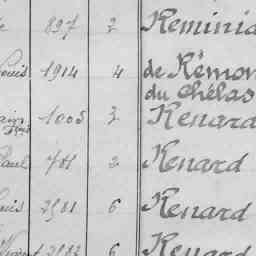 897 2 Reminia
Louis 1914 4 de Rémon
du Chélas
1005 3 Renard
Paul 781 2 Renard
Louis 2981 6 Renard
2982 6 Renard